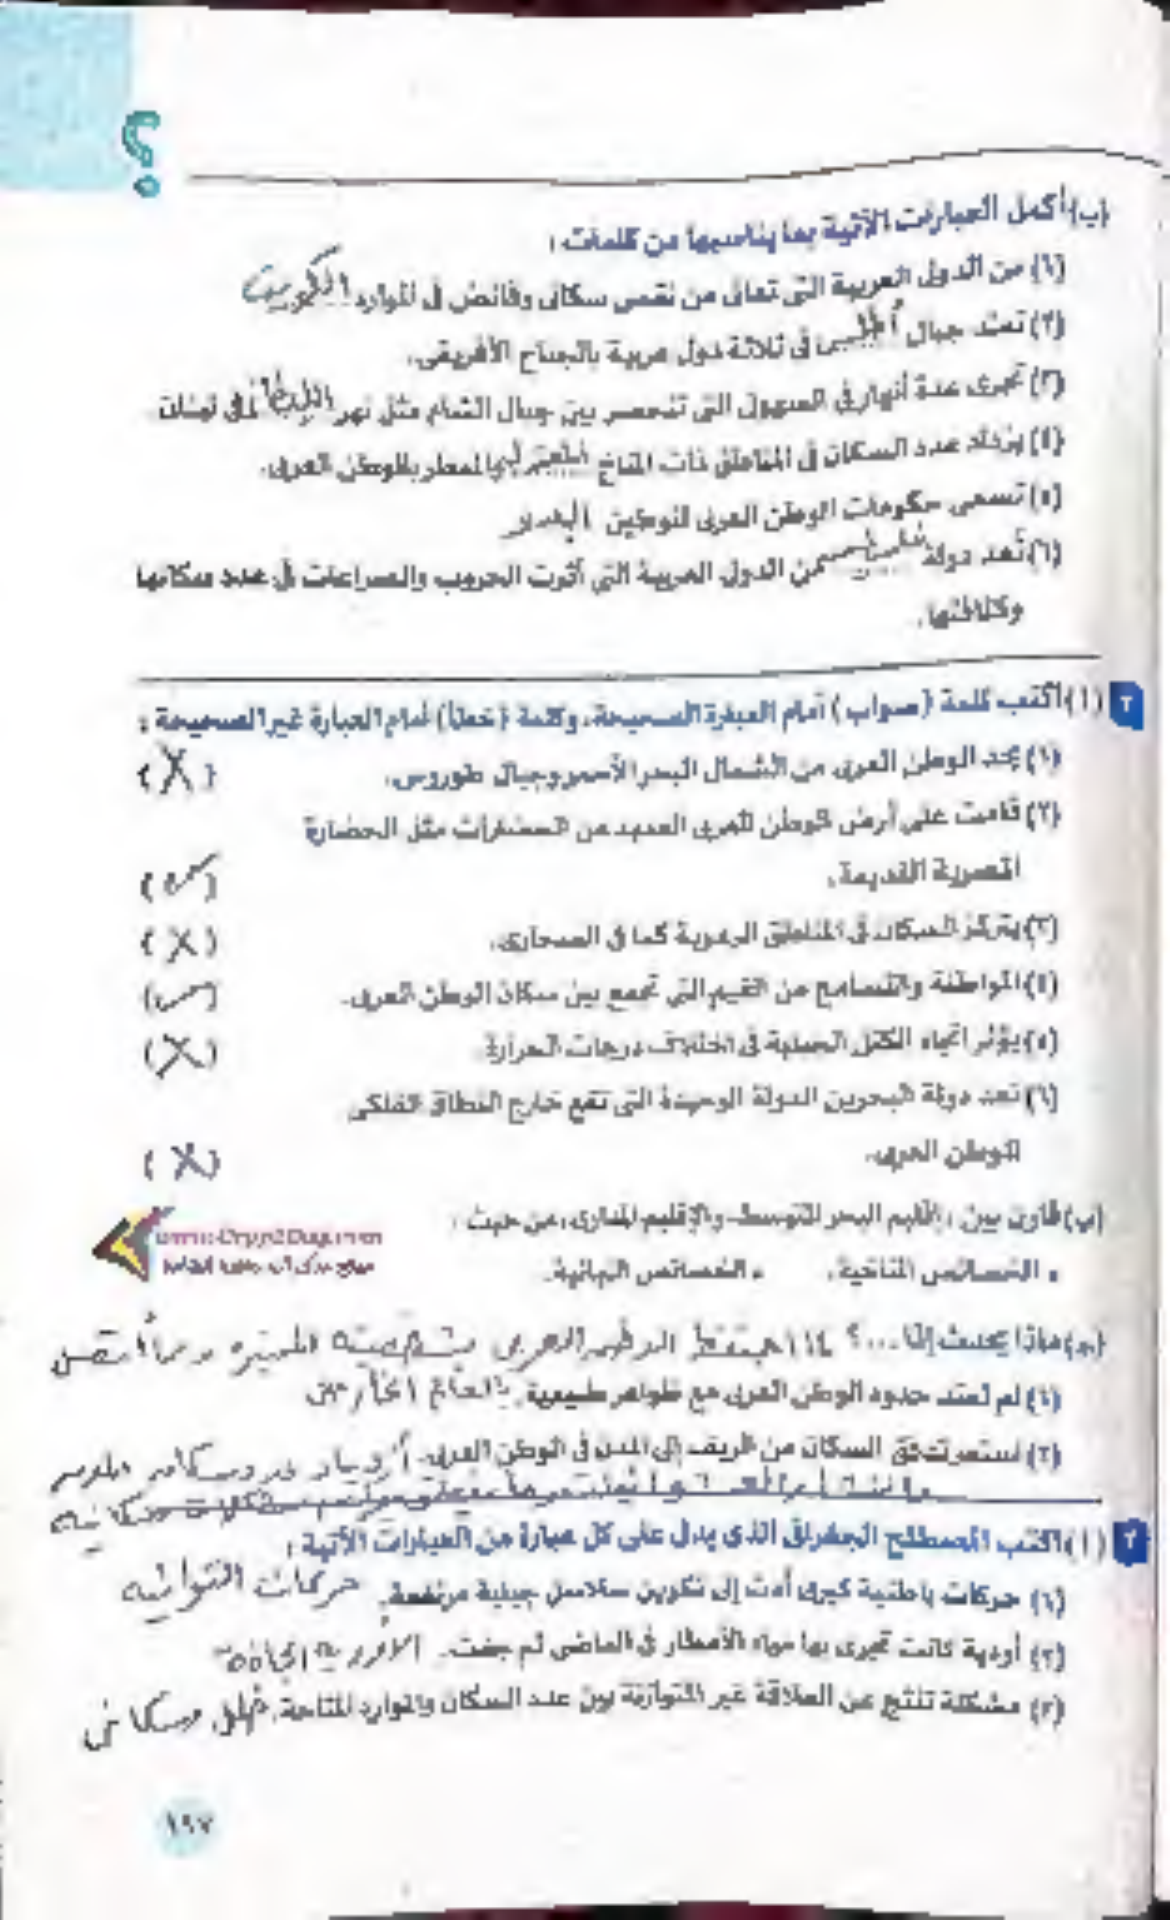 (ب) أكمل العبارات الآتية بما يناسبها من كلمات :
(١) من الدول العربية التى تعانى من نقص سكانى وفائض فى الموارد الكويت
(٢) تمتد جبال أطلس فى ثلاثة دول عربية بالجناح الأفريقى.
(٣) تجرى عدة أنهار فى السهول التى تنحصر بين جبال الشام مثل نهر فى لبنان
(٤) يزداد عدد السكان فى المناطق ذات المناخ المعتدل والمطر بالوطن العربى.
(٥) تسعى حكومات الوطن العربى لتوطين
(٦) تُعد دولة من الدول العربية التى أثرت الحروب والصراعات فى عدد سكانها
وكثافتها.
٢ (أ) اكتب كلمة (صواب) أمام العبارة الصحيحة، وكلمة (خطأ) أمام العبارة غير الصحيحة :
(١) يحد الوطن العربى من الشمال البحر الأحمر وجبال طوروس. (X)
(٢) قامت على أرض الوطن العربى العديد من الحضارات مثل الحضارة
المصرية القديمة. (✓)
(٣) يتركز السكان فى المناطق الرعوية كما فى الصحارى. (X)
(٤) المواطنة والتسامح من القيم التى تجمع بين سكان الوطن العربى. (✓)
(٥) يؤثر اتجاه الكتل الجبلية فى اختلاف درجات الحرارة. (X)
(٦) تعد دولة البحرين الدولة الوحيدة التى تقع خارج النطاق الفلكى
للوطن العربى. (X)
(ب) قارن بين : إقليم البحر المتوسط والإقليم المدارى، من حيث :
• الخصائص المناخية. • الخصائص النباتية.
(جـ) ماذا يحدث إذا ...؟ العربى المميزه
(١) لم تمتد حدود الوطن العربى مع ظواهر طبيعية. بالعالم الخارجى
(٢) استمر تدفق السكان من الريف إلى المدن فى الوطن العربى.
مشكلات سكانيه
٣ (أ) اكتب المصطلح الجغرافى الذى يدل على كل عبارة من العبارات الآتية :
(١) حركات باطنية كبرى أدت إلى تكوين سلاسل جبلية مرتفعة. حركات التوائيه
(٢) أودية كانت تجرى بها مياه الأمطار فى الماضى ثم جفت. الأوديه الجافة
(٣) مشكلة تنتج عن العلاقة غير المتوازنة بين عدد السكان والموارد المتاحة.
١٩٧